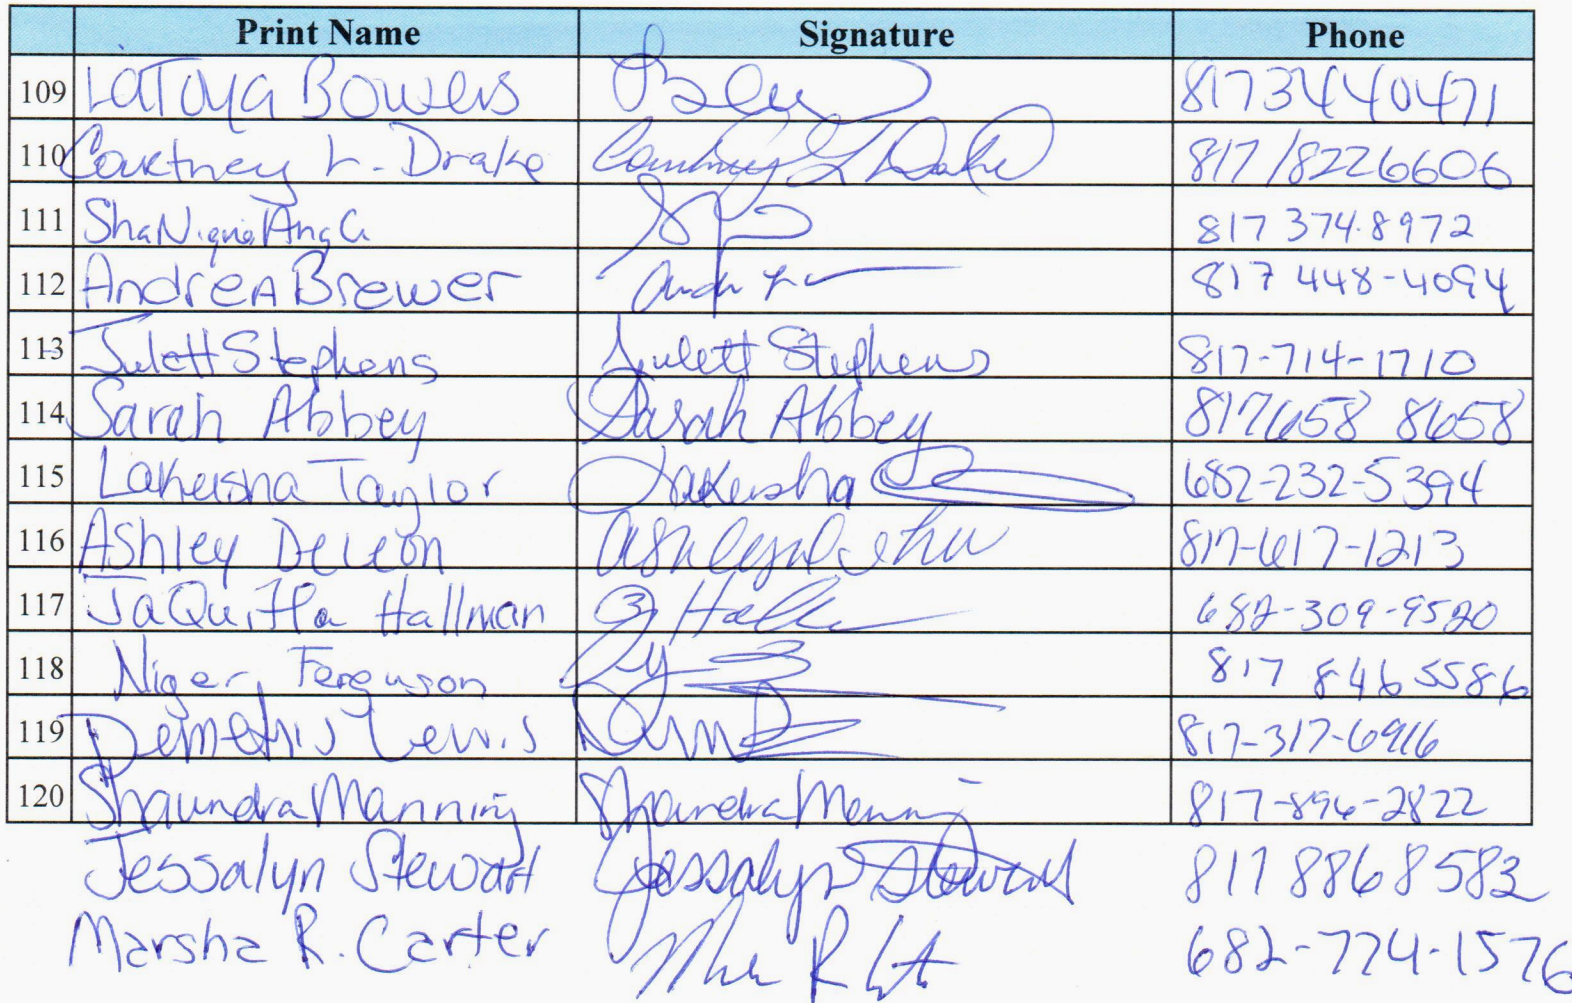 Print Name Signature Phone
109 LaToya Bowers 8173440471
110 Courtney L. Drake Courtney L Drake 817/8226606
111 ShaNiqua 817 374.8972
112 Andrea Brewer 817 448-4094
113 Julett Stephens Julett Stephens 817-714-1710
114 Sarah Abbey Sarah Abbey 817658 8658
115 Lakeisha Taylor Lakeisha 682-232-5394
116 Ashley DeLeon Ashley 817-617-1213
117 JaQuitta Hallman Hall 682-309-9520
118 Niger Ferguson 817 846 5586
119 Demetris Lewis 817-317-6916
120 Shaundra Manning Shaundra Manning 817-896-2822
Jessalyn Stewart Jessalyn Stewart 817 886 8582
Marsha R. Carter 682-774-1576